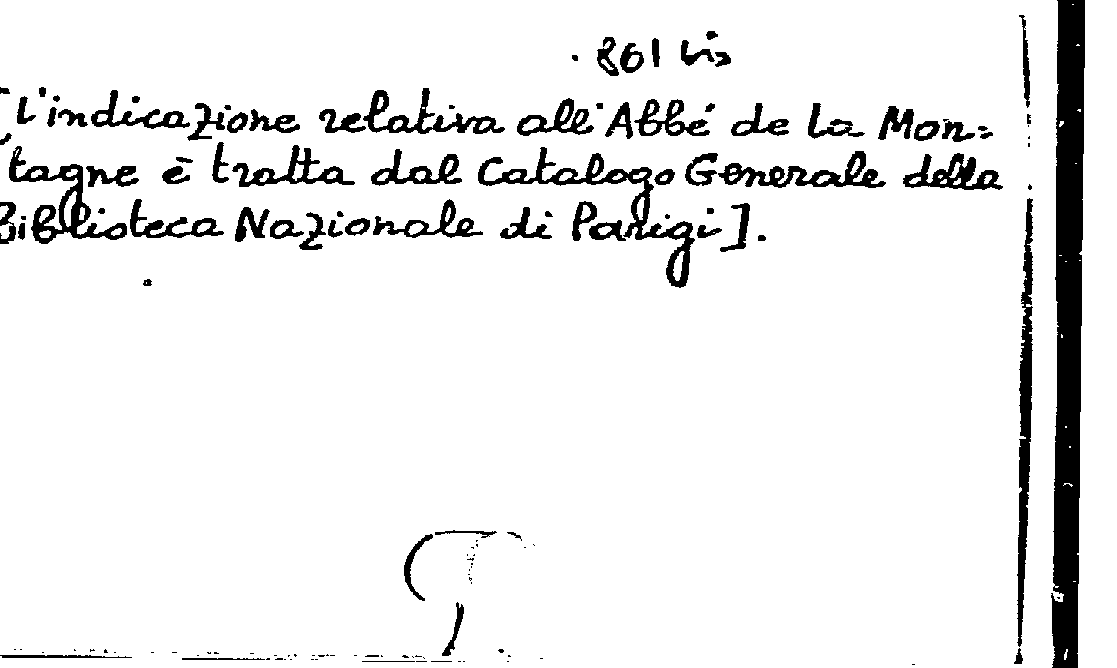 801 bis
[L'indicazione relativa all'Abbé de La Mon=
tagne è tratta dal Catalogo Generale della
Biblioteca Nazionale di Parigi].